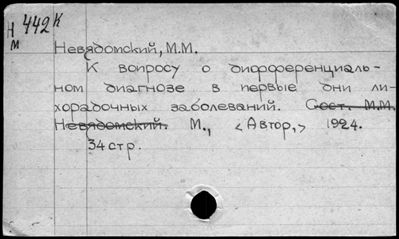 Н 442К
М
Невядомский, М.М.
К вопросу о дифференциаль-
ном диагнозе в первые дни ли-
хорадочных заболеваний. Сост. М.М.
Невядомский. М., <Автор,> 1924.
34 стр.